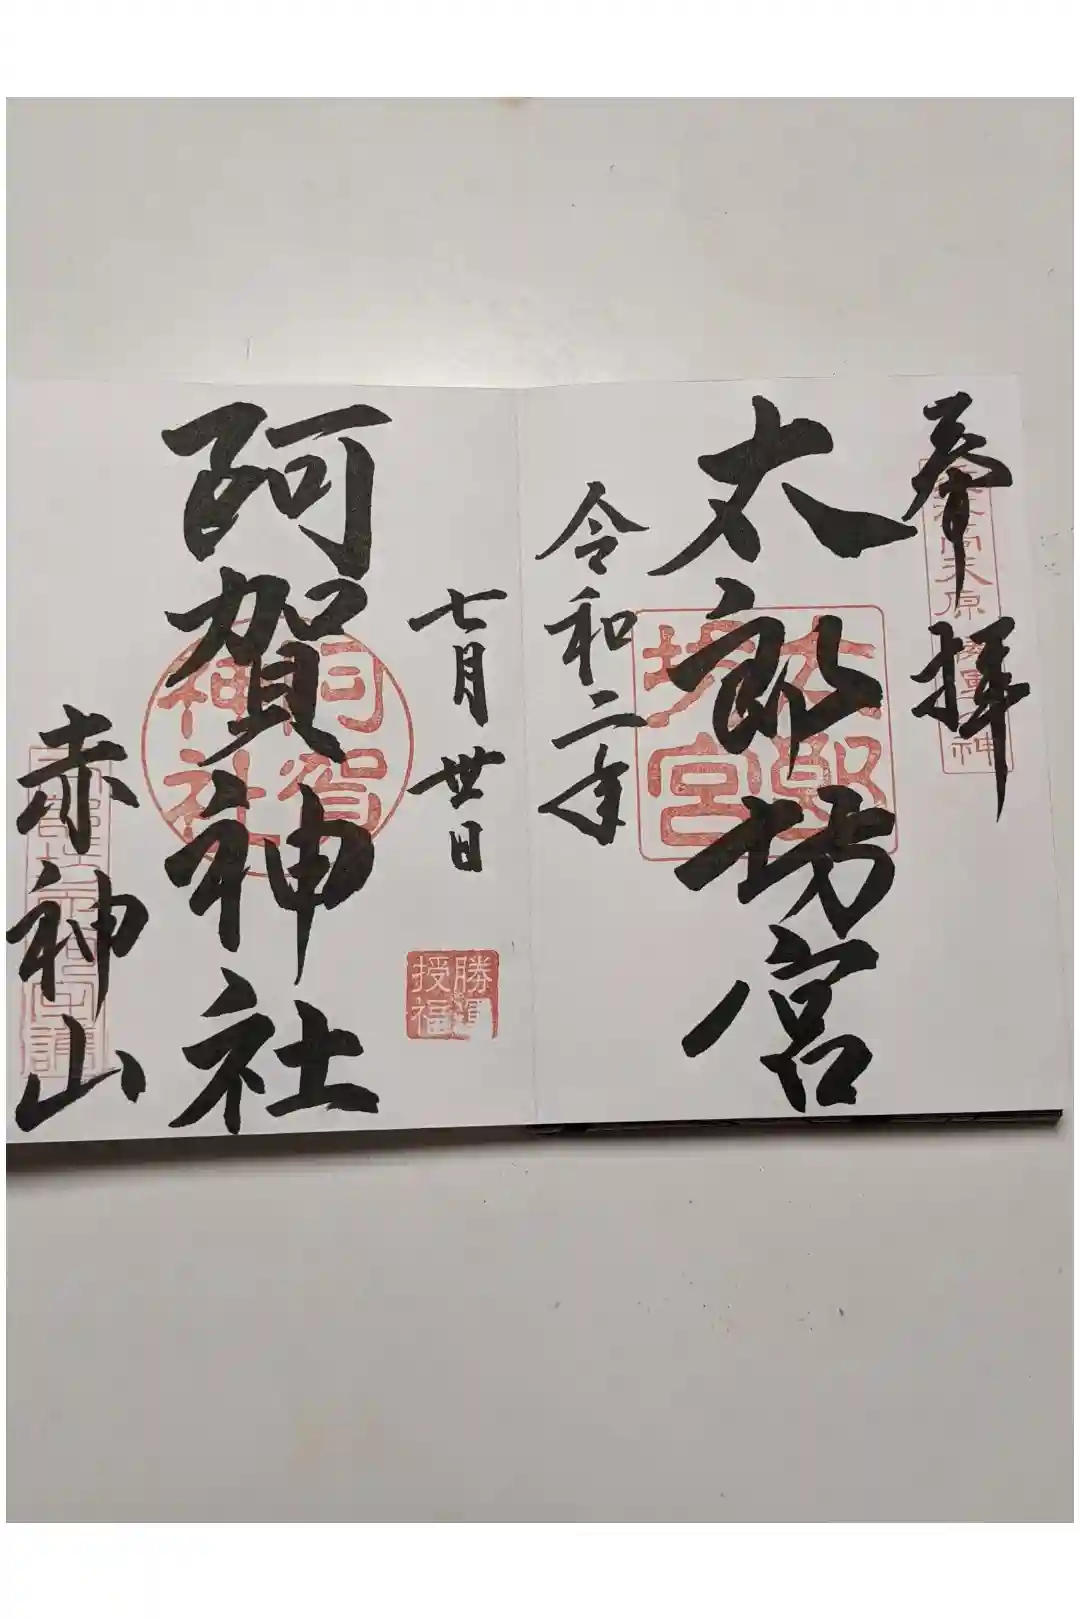 奉拝
太郎坊宮
太郎坊宮
令和二年
七月丗日
勝運授福
阿賀神社
阿賀神社
赤神山